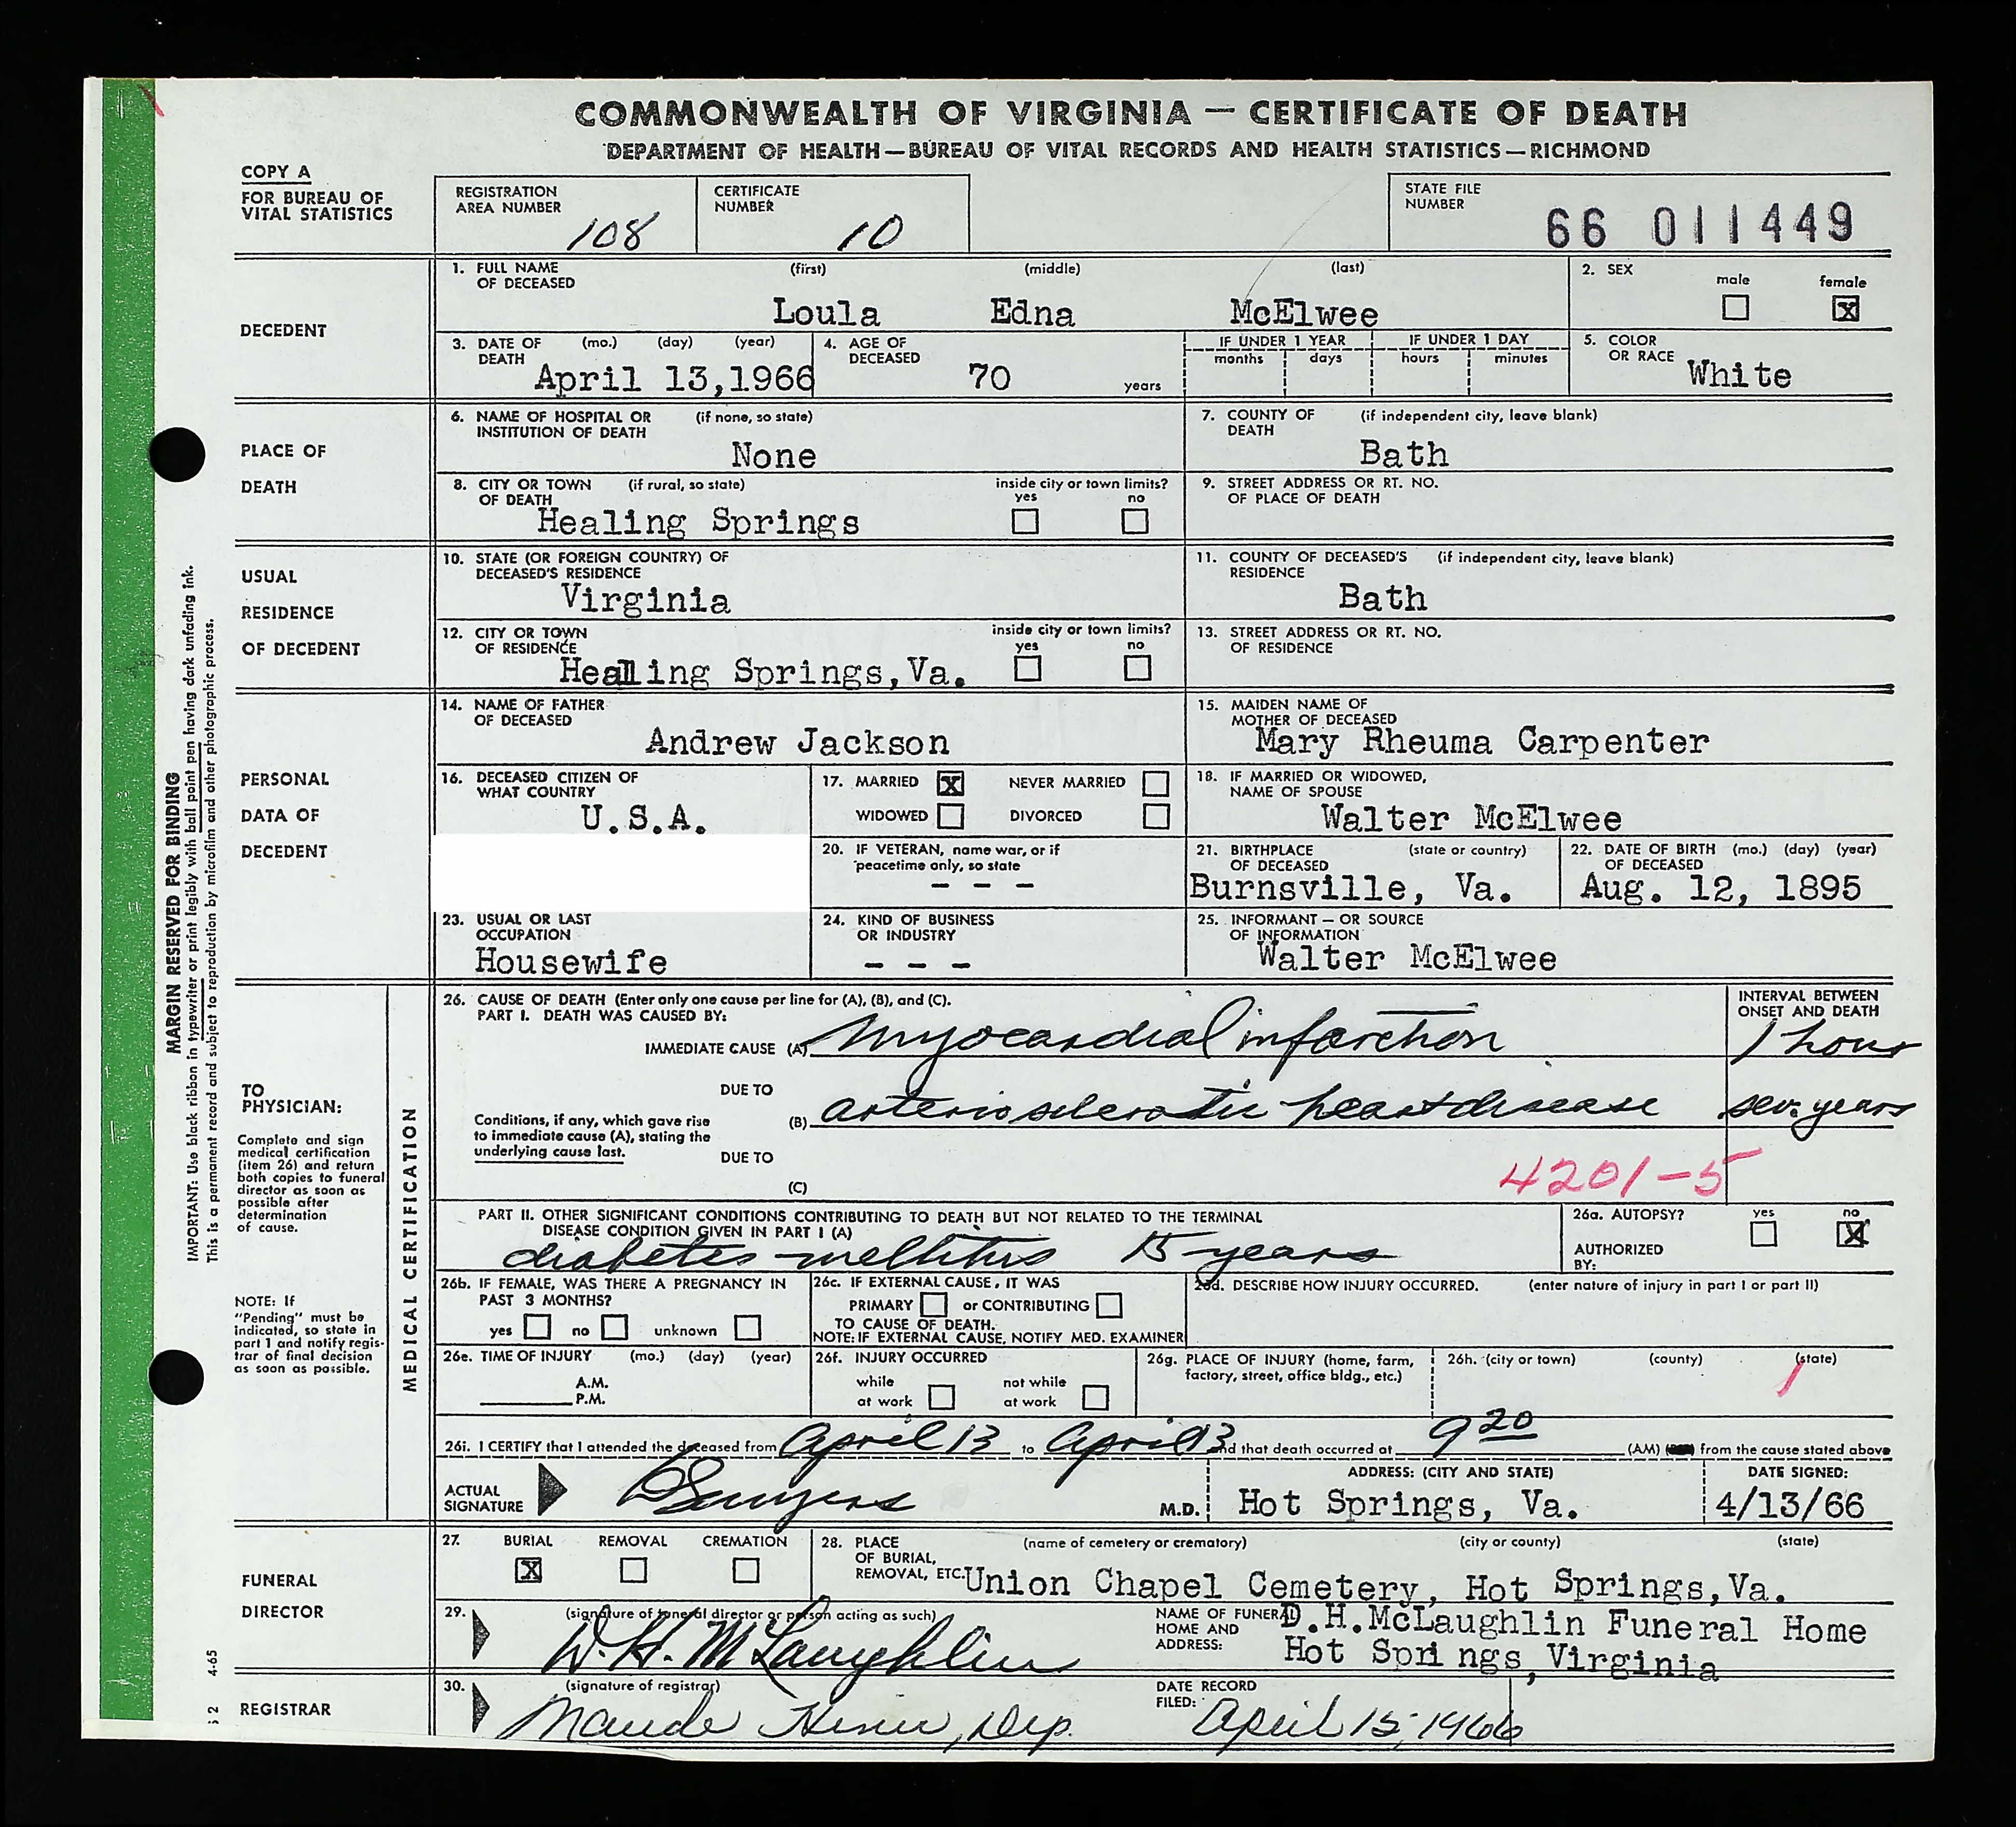 COMMONWEALTH OF VIRGINIA — CERTIFICATE OF DEATH
DEPARTMENT OF HEALTH—BUREAU OF VITAL RECORDS AND HEALTH STATISTICS—RICHMOND
COPY A
FOR BUREAU OF
VITAL STATISTICS
REGISTRATION
AREA NUMBER
108
CERTIFICATE
NUMBER
10
STATE FILE
NUMBER
66 011449
DECEDENT
1. FULL NAME (first) (middle) (last)
OF DECEASED
Loula Edna McElwee
2. SEX
male female
X
3. DATE OF (mo.) (day) (year)
DEATH
April 13,1966
4. AGE OF
DECEASED
70 years
IF UNDER 1 YEAR IF UNDER 1 DAY
months days hours minutes
5. COLOR
OR RACE White
PLACE OF
DEATH
6. NAME OF HOSPITAL OR (if none, so state)
INSTITUTION OF DEATH
None
7. COUNTY OF (if independent city, leave blank)
DEATH
Bath
8. CITY OR TOWN (if rural, so state) inside city or town limits?
OF DEATH yes no
Healing Springs
9. STREET ADDRESS OR RT. NO.
OF PLACE OF DEATH
USUAL
RESIDENCE
OF DECEDENT
10. STATE (OR FOREIGN COUNTRY) OF
DECEASED'S RESIDENCE
Virginia
11. COUNTY OF DECEASED'S (if independent city, leave blank)
RESIDENCE
Bath
12. CITY OR TOWN inside city or town limits?
OF RESIDENCE yes no
Healing Springs,Va.
13. STREET ADDRESS OR RT. NO.
OF RESIDENCE
PERSONAL
DATA OF
DECEDENT
14. NAME OF FATHER
OF DECEASED
Andrew Jackson
15. MAIDEN NAME OF
MOTHER OF DECEASED
Mary Rheuma Carpenter
16. DECEASED CITIZEN OF
WHAT COUNTRY
U.S.A.
17. MARRIED X NEVER MARRIED
WIDOWED DIVORCED
18. IF MARRIED OR WIDOWED,
NAME OF SPOUSE
Walter McElwee
20. IF VETERAN, name war, or if
peacetime only, so state
- - -
21. BIRTHPLACE (state or country)
OF DECEASED
Burnsville, Va.
22. DATE OF BIRTH (mo.) (day) (year)
OF DECEASED
Aug. 12, 1895
23. USUAL OR LAST
OCCUPATION
Housewife
24. KIND OF BUSINESS
OR INDUSTRY
- - -
25. INFORMANT — OR SOURCE
OF INFORMATION
Walter McElwee
MARGIN RESERVED FOR BINDING
IMPORTANT: Use black ribbon in typewriter or print legibly with ball point pen having dark unfading ink.
This is a permanent record and subject to reproduction by microfilm and other photographic process.
TO
PHYSICIAN:
Complete and sign
medical certification
(item 26) and return
both copies to funeral
director as soon as
possible after
determination
of cause.
NOTE: If
"Pending" must be
indicated, so state in
part 1 and notify regis-
trar of final decision
as soon as possible.
MEDICAL CERTIFICATION
26. CAUSE OF DEATH (Enter only one cause per line for (A), (B), and (C).
PART I. DEATH WAS CAUSED BY:
INTERVAL BETWEEN
ONSET AND DEATH
IMMEDIATE CAUSE (A) myocardial infarction 1 hour
DUE TO
Conditions, if any, which gave rise
to immediate cause (A), stating the
underlying cause last.
(B) arteriosclerotic heart disease sev. years
DUE TO
(C)
4201-5
PART II. OTHER SIGNIFICANT CONDITIONS CONTRIBUTING TO DEATH BUT NOT RELATED TO THE TERMINAL
DISEASE CONDITION GIVEN IN PART I (A)
diabetes mellitus 15 years
26a. AUTOPSY? yes no
X
AUTHORIZED
BY:
26b. IF FEMALE, WAS THERE A PREGNANCY IN
PAST 3 MONTHS?
yes no unknown
26c. IF EXTERNAL CAUSE, IT WAS
PRIMARY or CONTRIBUTING
TO CAUSE OF DEATH.
NOTE: IF EXTERNAL CAUSE, NOTIFY MED. EXAMINER
26d. DESCRIBE HOW INJURY OCCURRED. (enter nature of injury in part I or part II)
26e. TIME OF INJURY (mo.) (day) (year)
A.M.
P.M.
26f. INJURY OCCURRED
while not while
at work at work
26g. PLACE OF INJURY (home, farm,
factory, street, office bldg., etc.)
26h. (city or town) (county) (state)
1
26i. I CERTIFY that I attended the deceased from April 13 to April 13 and that death occurred at 9 20 (AM) from the cause stated above
ACTUAL
SIGNATURE
M.D.
ADDRESS: (CITY AND STATE)
Hot Springs, Va.
DATE SIGNED:
4/13/66
FUNERAL
DIRECTOR
27. BURIAL REMOVAL CREMATION
X
28. PLACE (name of cemetery or crematory) (city or county) (state)
OF BURIAL,
REMOVAL, ETC. Union Chapel Cemetery, Hot Springs,Va.
29. (signature of funeral director or person acting as such)
D. H. McLaughlin
NAME OF FUNERAL
HOME AND
ADDRESS:
D.H.McLaughlin Funeral Home
Hot Springs, Virginia
REGISTRAR
30. (signature of registrar)
Maude Hiner, Dep.
DATE RECORD
FILED:
April 15, 1966
4-65